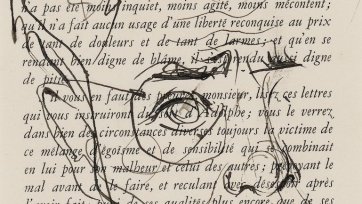 n'a pas été moins inquiet, moins agité, moins mécontent;
qu'il n'a fait aucun usage d'une liberté reconquise au prix
de tant de douleurs et de tant de larmes; et qu'en se
rendant bien digne de blâme, il s'est rendu aussi digne
de pitié.
Il vous en faut des preuves, monsieur, lisez ces lettres
qui vous instruiront du sort d'Adolphe; vous le verrez
dans bien des circonstances diverses toujours la victime de
ce mélange d'égoïsme et de sensibilité qui se combinait
en lui pour son malheur et celui des autres; prévoyant le
mal avant de le faire, et reculant avec désespoir après
l'avoir fait; puni de ses qualités plus encore que de ses